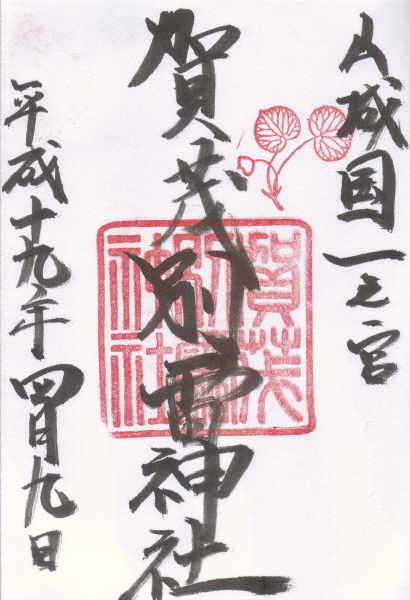 山城国一之宮
賀茂別雷神社
平成十九年四月九日
賀茂別雷神社